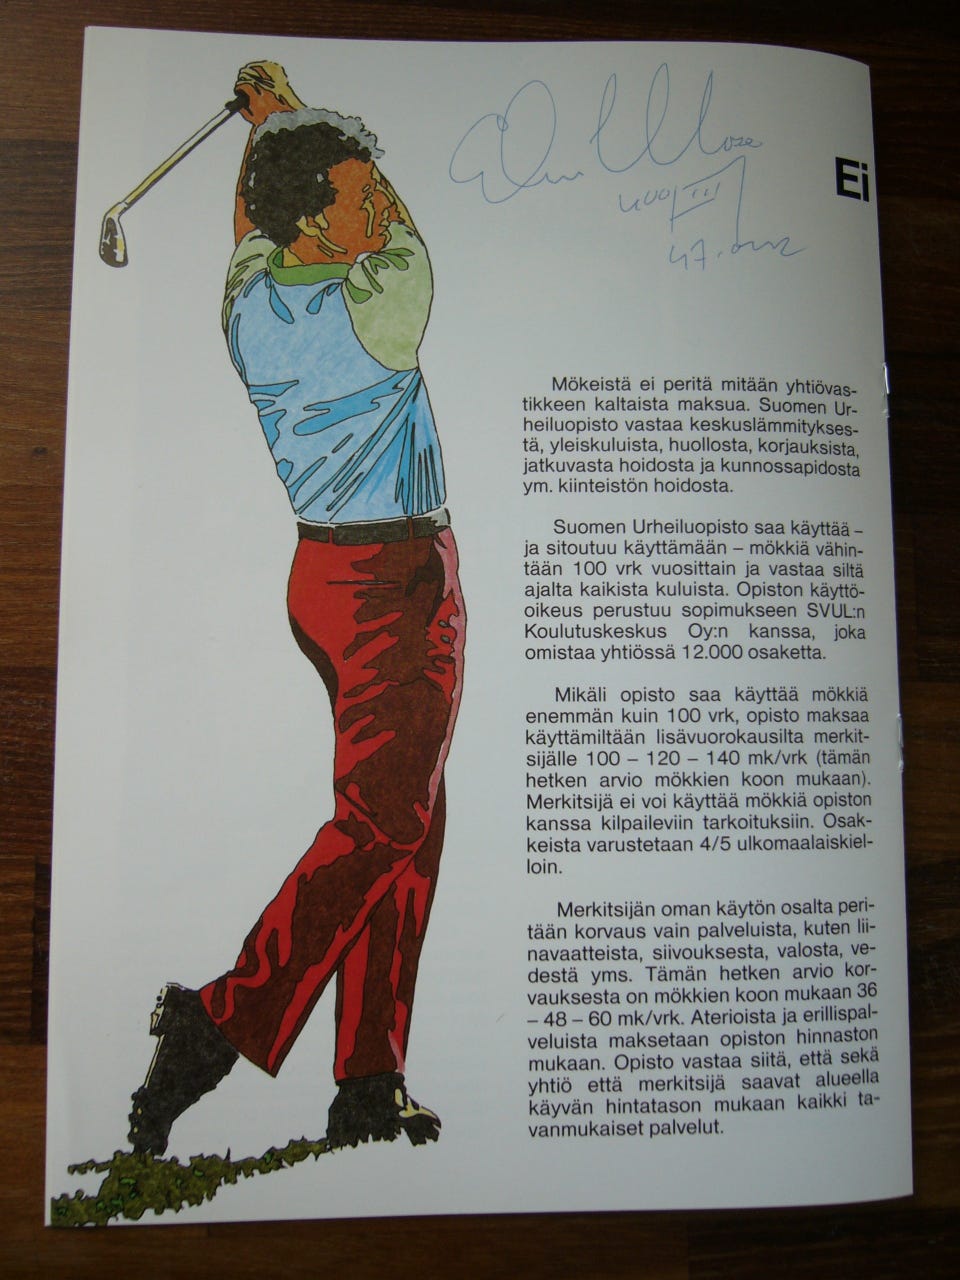 Ed
Moses
400 m
47.02
Ei
Mökeistä ei peritä mitään yhtiövas-
tikkeen kaltaista maksua. Suomen Ur-
heiluopisto vastaa keskuslämmitykses-
tä, yleiskuluista, huollosta, korjauksista,
jatkuvasta hoidosta ja kunnossapidosta
ym. kiinteistön hoidosta.
Suomen Urheiluopisto saa käyttää –
ja sitoutuu käyttämään – mökkiä vähin-
tään 100 vrk vuosittain ja vastaa siltä
ajalta kaikista kuluista. Opiston käyttö-
oikeus perustuu sopimukseen SVUL:n
Koulutuskeskus Oy:n kanssa, joka
omistaa yhtiössä 12.000 osaketta.
Mikäli opisto saa käyttää mökkiä
enemmän kuin 100 vrk, opisto maksaa
käyttämiltään lisävuorokausilta merkit-
sijälle 100 – 120 – 140 mk/vrk (tämän
hetken arvio mökkien koon mukaan).
Merkitsijä ei voi käyttää mökkiä opiston
kanssa kilpaileviin tarkoituksiin. Osak-
keista varustetaan 4/5 ulkomaalaiskiel-
loin.
Merkitsijän oman käytön osalta peri-
tään korvaus vain palveluista, kuten lii-
navaatteista, siivouksesta, valosta, ve-
destä yms. Tämän hetken arvio kor-
vauksesta on mökkien koon mukaan 36
– 48 – 60 mk/vrk. Aterioista ja erillispal-
veluista maksetaan opiston hinnaston
mukaan. Opisto vastaa siitä, että sekä
yhtiö että merkitsijä saavat alueella
käyvän hintatason mukaan kaikki ta-
vanmukaiset palvelut.